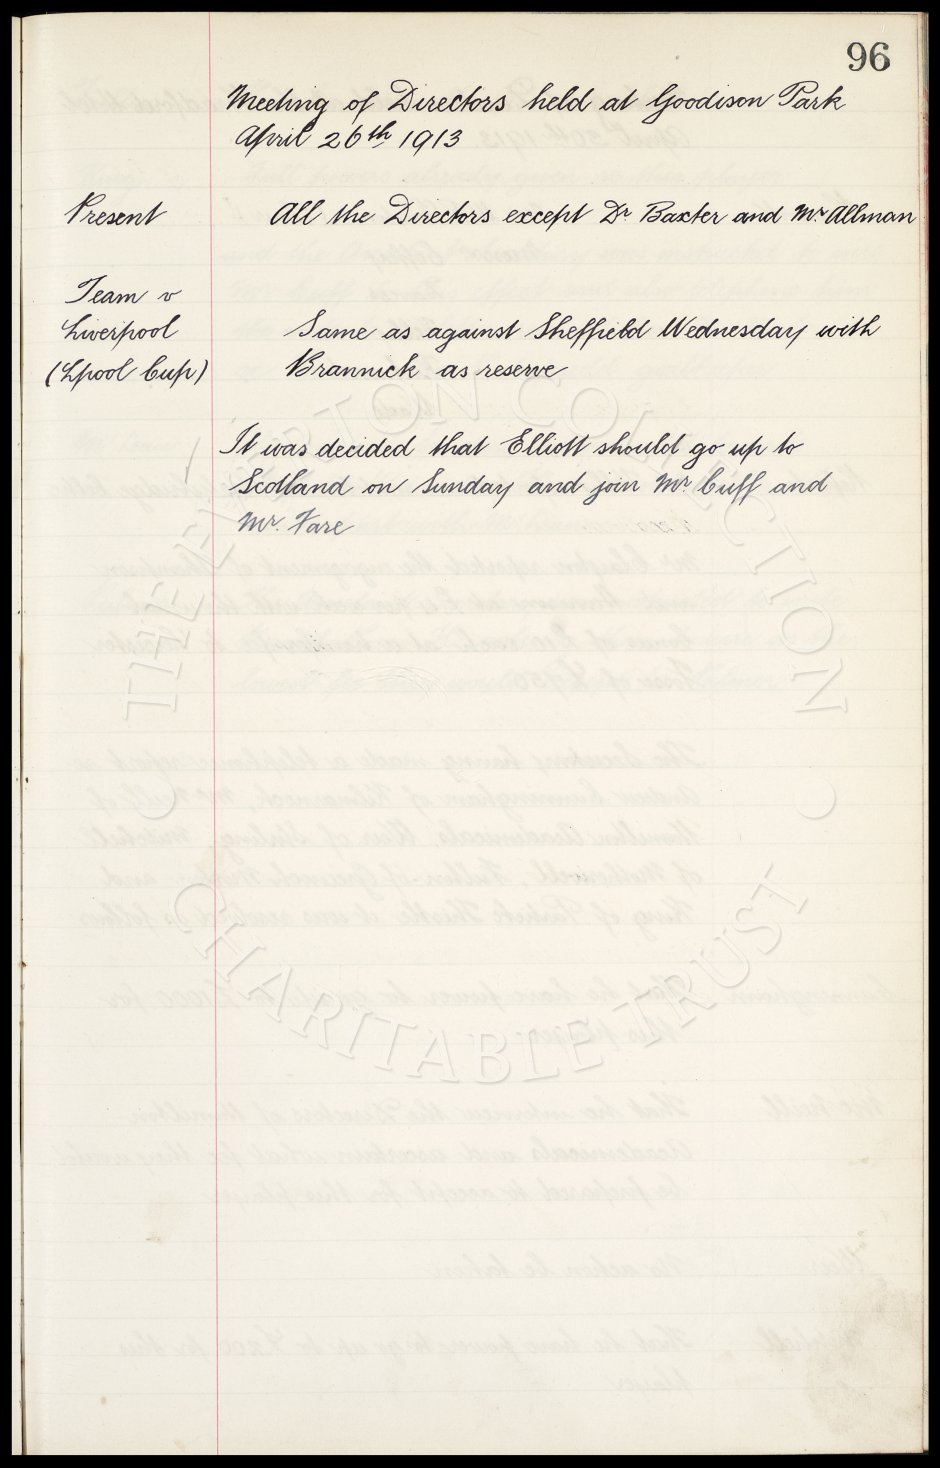 96
Meeting of Directors held at Goodison Park
April 26th 1913
Present All the Directors except Dr Baxter and Mr. Allman
Team v
Liverpool Same as against Sheffield Wednesday with
(Lpool Cup) Brannick as reserve
It was decided that Elliott should go up to
Scotland on Sunday and join Mr. Cuff and
Mr. Fare
THE EVERTON COLLECTION
CHARITABLE TRUST